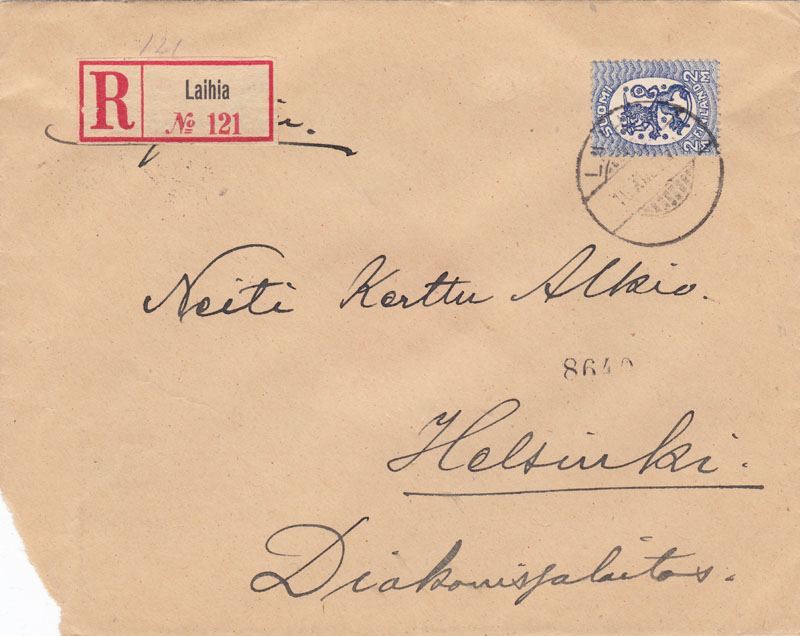 121
R
Laihia
№ 121
SUOMI FINLAND
2 2
Neiti Kerttu Alkio.
864
Helsinki.
Diakonissalaitos.